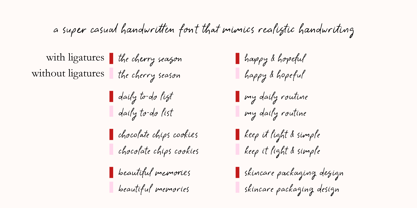 a super casual handwritten font that mimics realistic handwriting
with ligatures the cherry season happy & hopeful
without ligatures the cherry season happy & hopeful
daily to-do list my daily routine
daily to-do list my daily routine
chocolate chips cookies keep it light & simple
chocolate chips cookies keep it light & simple
beautiful memories skincare packaging design
beautiful memories skincare packaging design